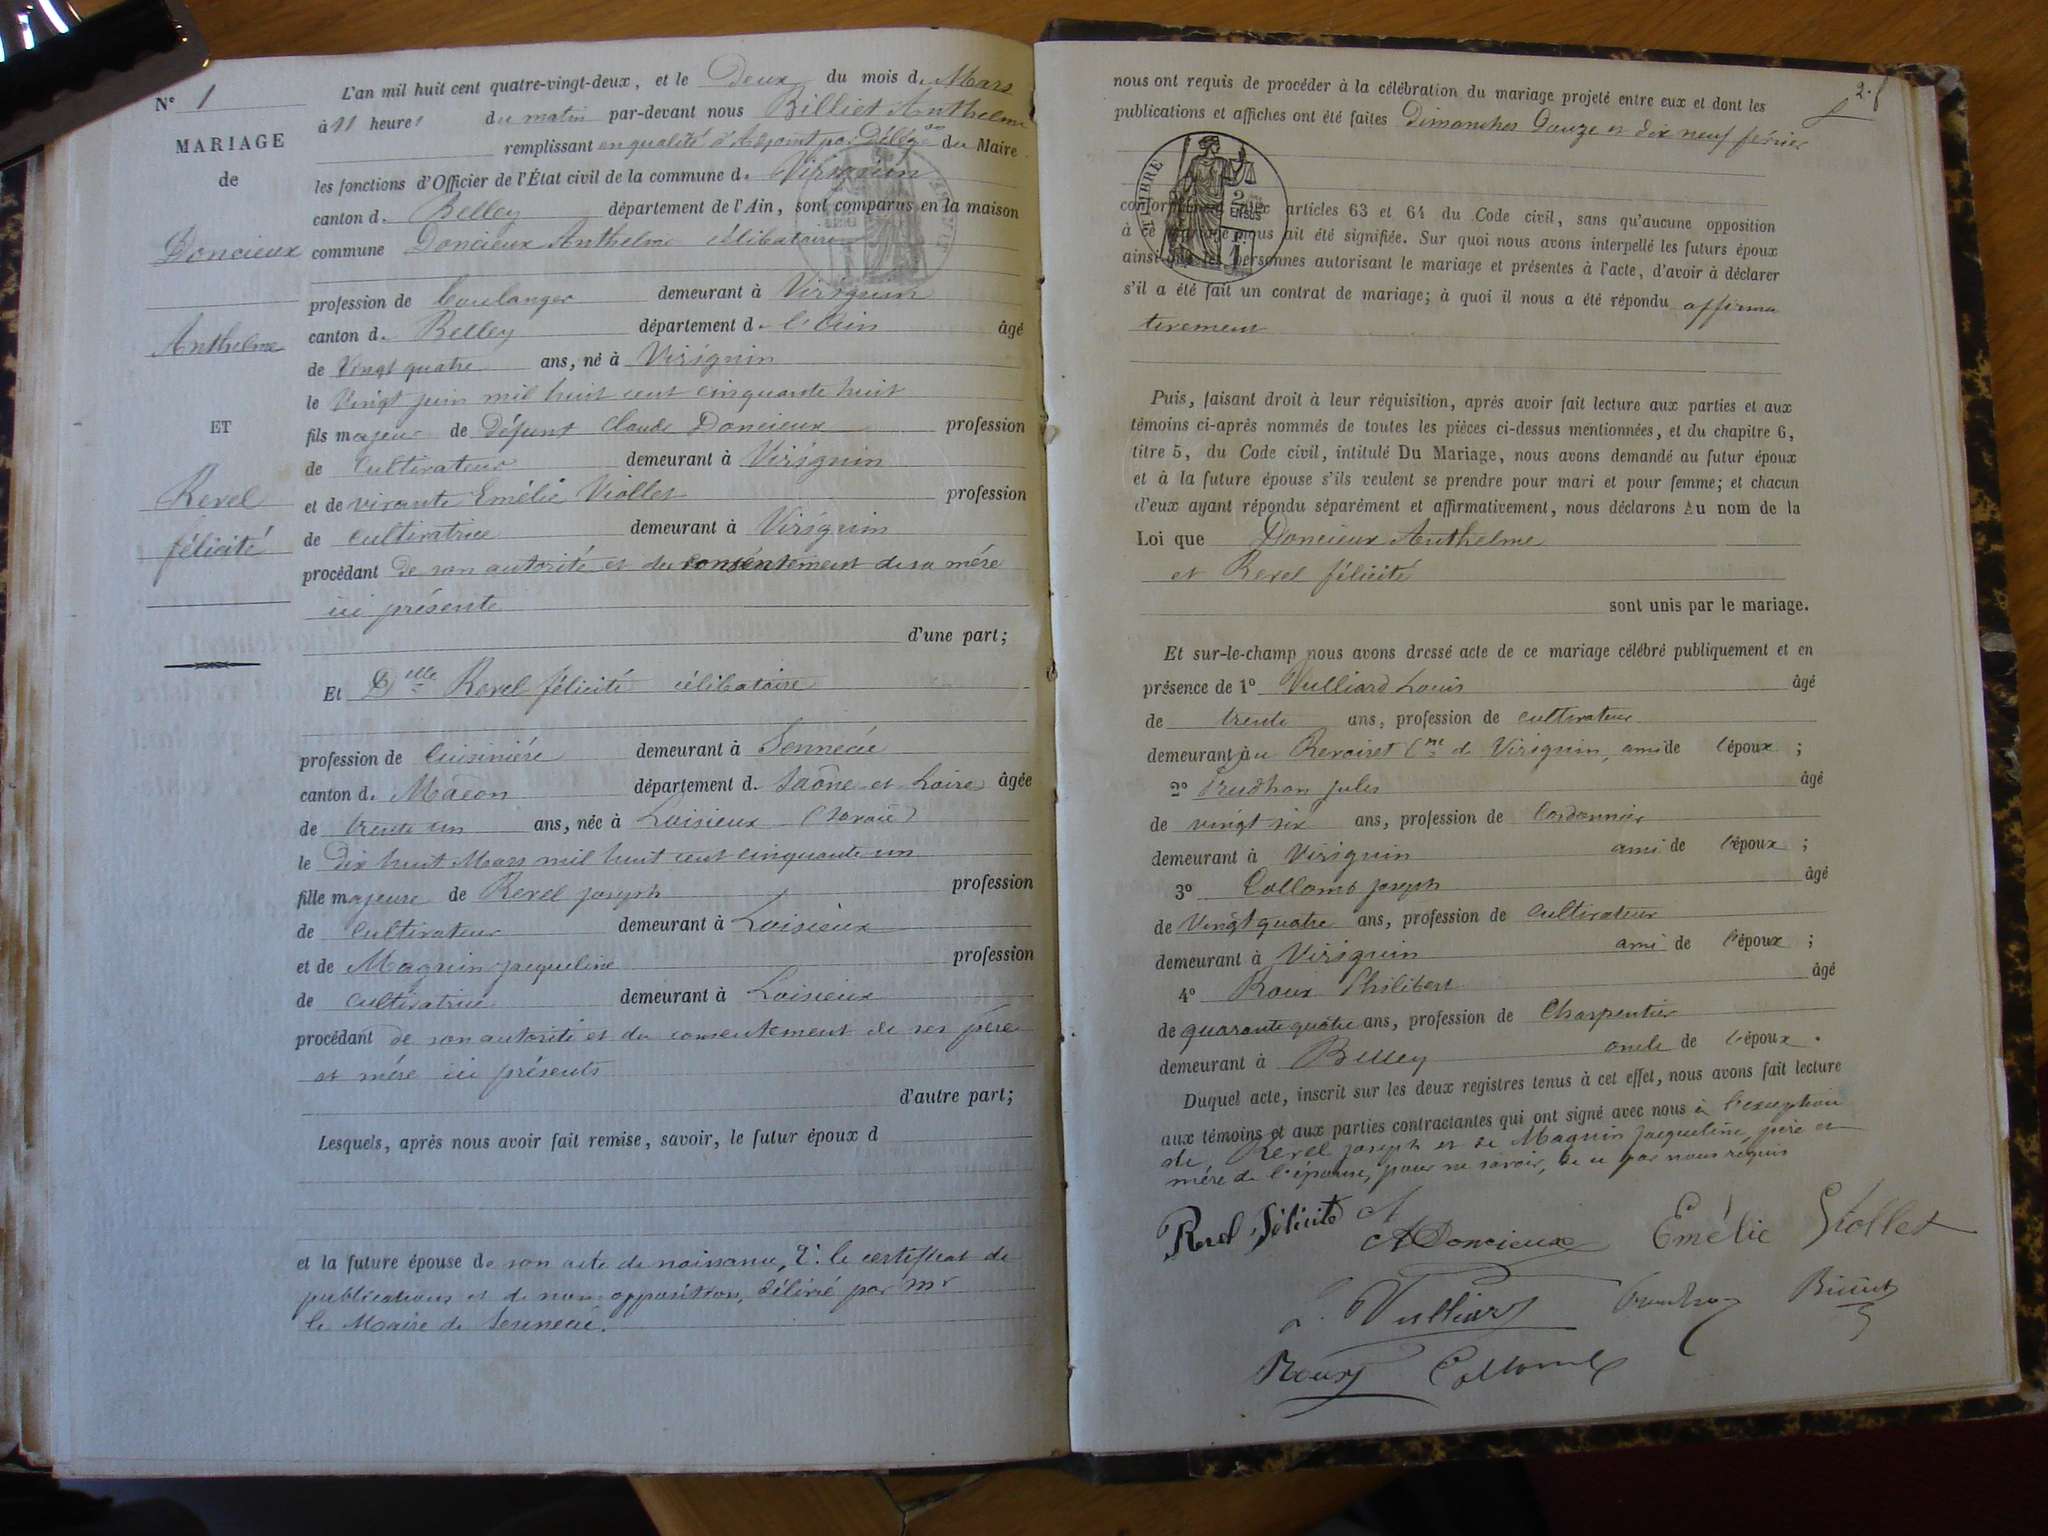 N° 1
MARIAGE
de
Doncieux
Anthelme
ET
Revel
félicité
L'an mil huit cent quatre-vingt-deux, et le Deux du mois de Mars
à 11 heures du matin par-devant nous Billiet Anthelme
remplissant en qualité d'Adjoint par Délég.on du Maire
les fonctions d'Officier de l'État civil de la commune de Virignin
canton de Belley département de l'Ain, sont comparus en la maison
commune Doncieux Anthelme célibataire
profession de boulanger demeurant à Virignin
canton de Belley département de l'Ain âgé
de Vingt quatre ans, né à Virignin
le Vingt juin mil huit cent cinquante huit
fils majeur de défunt Claude Doncieux profession
de Cultivateur demeurant à Virignin
et de vivante Emélie Viollet profession
de cultivatrice demeurant à Virignin
procédant de son autorité et du consentement de sa mére
ici présente
d'une part;
Et Delle Revel félicité célibataire
profession de Cuisiniére demeurant à Sennecé
canton de Mâcon département de Saône et Loire âgée
de trente un ans, née à Loisieux (Savoie)
le Dix huit Mars mil huit cent cinquante un
fille majeure de Revel joseph profession
de Cultivateur demeurant à Loisieux
et de Magnin jacqueline profession
de cultivatrice demeurant à Loisieux
procédant de son autorité et du consentement de ses père
et mére ici présents
d'autre part;
Lesquels, après nous avoir fait remise, savoir, le futur époux d
et la future épouse de son acte de naissance, 2° le certificat de
publications et de non opposition, délivré par Mr
le Maire de Sennecé.
2.
nous ont requis de procéder à la célébration du mariage projeté entre eux et dont les
publications et affiches ont été faites Dimanches Douze et dix neuf février
TIMBRE
conformément aux articles 63 et 64 du Code civil, sans qu'aucune opposition
à ce mariage nous ait été signifiée. Sur quoi nous avons interpellé les futurs époux
ainsi que les personnes autorisant le mariage et présentes à l'acte, d'avoir à déclarer
s'il a été fait un contrat de mariage; à quoi il nous a été répondu affirma
tivement
Puis, faisant droit à leur réquisition, après avoir fait lecture aux parties et aux
témoins ci-après nommés de toutes les pièces ci-dessus mentionnées, et du chapitre 6,
titre 5, du Code civil, intitulé Du Mariage, nous avons demandé au futur époux
et à la future épouse s'ils veulent se prendre pour mari et pour femme; et chacun
d'eux ayant répondu séparément et affirmativement, nous déclarons Au nom de la
Loi que Doncieux Anthelme
et Revel félicité
sont unis par le mariage.
Et sur-le-champ nous avons dressé acte de ce mariage célébré publiquement et en
présence de 1° Vulliard Louis âgé
de trente ans, profession de cultivateur
demeurant au Revoiret Cne de Virignin, ami de l'époux;
2° Prudhon jules âgé
de vingt six ans, profession de Cordonnier
demeurant à Virignin ami de l'époux;
3° Collomb joseph âgé
de Vingt quatre ans, profession de cultivateur
demeurant à Virignin ami de l'époux;
4° Roux Philibert âgé
de quarante quatre ans, profession de Charpentier
demeurant à Belley oncle de l'époux.
Duquel acte, inscrit sur les deux registres tenus à cet effet, nous avons fait lecture
aux témoins et aux parties contractantes qui ont signé avec nous à l'exception
de Revel joseph et de Magnin jacqueline, père et
mére de l'épouse, pour ne savoir, de ce par nous requis
Revel Félicité A Doncieux Emélie Viollet
L. Vulliard Prudhon Billiet
Roux Collomb